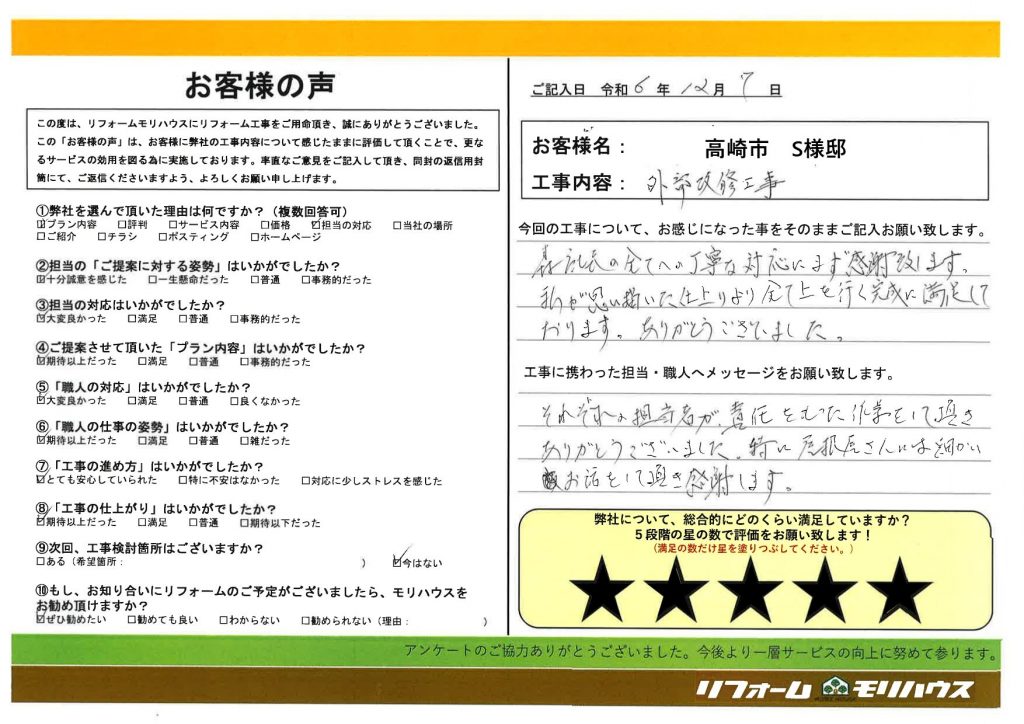 お客様の声
この度は、リフォームモリハウスにリフォーム工事をご用命頂き、誠にありがとうございました。
この「お客様の声」は、お客様に弊社の工事内容について感じたままに評価して頂くことで、更な
るサービスの効用を図る為に実施しております。率直なご意見をご記入して頂き、同封の返信用封
筒にて、ご返信くださいますよう、よろしくお願い申し上げます。
①弊社を選んで頂いた理由は何ですか？（複数回答可）
☑プラン内容 □評判 □サービス内容 □価格 ☑担当の対応 □当社の場所
□ご紹介 □チラシ □ポスティング □ホームページ
②担当の「ご提案に対する姿勢」はいかがでしたか？
☑十分誠意を感じた □一生懸命だった □普通 □事務的だった
③担当の対応はいかがでしたか？
☑大変良かった □満足 □普通 □事務的だった
④ご提案させて頂いた「プラン内容」はいかがでしたか？
☑期待以上だった □満足 □普通 □事務的だった
⑤「職人の対応」はいかがでしたか？
☑大変良かった □満足 □普通 □良くなかった
⑥「職人の仕事の姿勢」はいかがでしたか？
☑期待以上だった □満足 □普通 □雑だった
⑦「工事の進め方」はいかがでしたか？
☑とても安心していられた □特に不安はなかった □対応に少しストレスを感じた
⑧「工事の仕上がり」はいかがでしたか？
☑期待以上だった □満足 □普通 □期待以下だった
⑨次回、工事検討箇所はございますか？
□ある（希望箇所： ） ☑今はない
⑩もし、お知り合いにリフォームのご予定がございましたら、モリハウスを
お勧め頂けますか？
☑ぜひ勧めたい □勧めても良い □わからない □勧められない（理由： ）
ご記入日 令和 6 年 12 月 7 日
お客様名： 高崎市 S様邸
工事内容： 外部改修工事
今回の工事について、お感じになった事をそのままご記入お願い致します。
森社長の全てへの丁寧な対応にまず感謝致します。
私が思い描いた仕上りより全て上を行く完成に満足して
おります。ありがとうございました。
工事に携わった担当・職人へメッセージをお願い致します。
それぞれの担当者が、責任をもった作業をして頂き
ありがとうございました。特に さんには細かい
お話をして頂き感謝します。
弊社について、総合的にどのくらい満足していますか？
５段階の星の数で評価をお願い致します！
（満足の数だけ星を塗りつぶしてください。）
★★★★★
アンケートのご協力ありがとうございました。今後より一層サービスの向上に努めて参ります。
リフォーム モリハウス